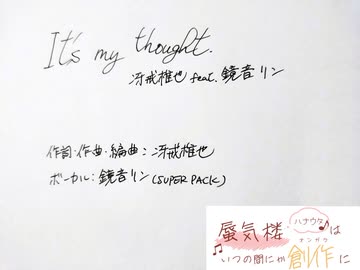 It's my thought.
冴戒椎也 feat. 鏡音リン
作詞・作曲・編曲：冴戒椎也
ボーカル：鏡音リン(SUPER PACK)
ハナウタ
蜃気楼は
ナンガラ
いつの間にか創作に